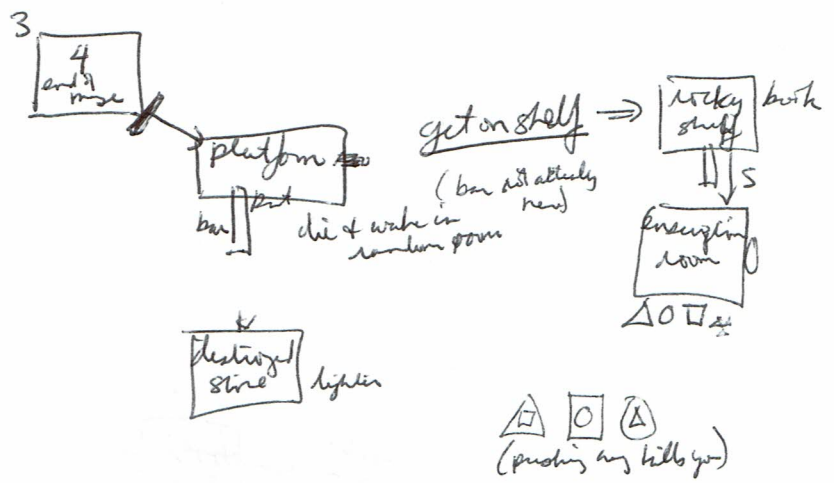 3
4
end of
maze
platform
bar
die & wake in
random room
get on shelf
(bar not already
here)
rocky
shelf
book
S
room
destroyed
store
lighter
(pushing any kills you)